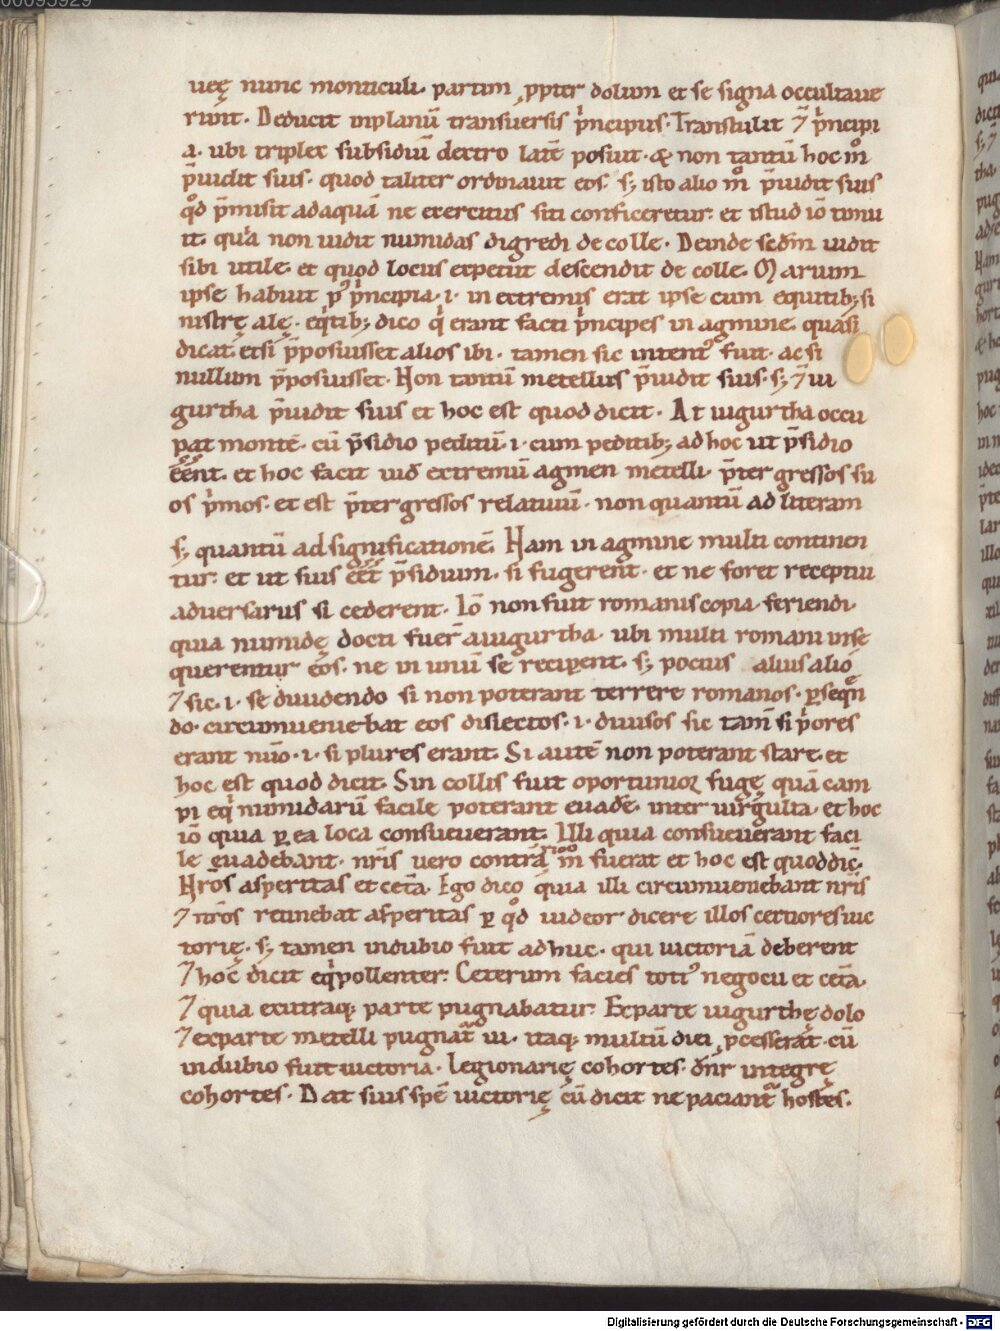 00095929
ueę nunc monticuli. partim ꝓpter dolum et se signa occultaue
runt. Deducit inplanū transuersis p̍ncipiis. Transtulit ⁊̄ p̍ncipi
a. ubi triplex subsidiū dextro latē posuit. & non tantū hoc m̊
p̄uidit suis. quod taliter ordinauit eos. s; isto alio m̊ p̄uidit suis
qd̊ p̄misit adaquā ne exercitus siti conficeretur. et istud iō timu
it. quia non uidit numidas digredi de colle. Deinde sedm̄ uidit
sibi utile. et quod locus expetiit descendit de colle. Marium
ipse habuit pꝰ p̍ncipia. i. in extremis erat ipse cum equitib; si
nistrę alę. eq̍tib; dico q̍ erant facti p̍ncipes in agmine. quasi
dicat. etsi p̄posuisset alios ibi. tamen sic intentꝰ fuit. ac si
nullum p̄posuisset. Non tantū metellus p̄uidit suis. s; ⁊̄ iu
gurtha p̄uidit suis et hoc est quod dicit. At iugurtha occu
pat montē. cū p̄sidio peditū. i. cum peditib; ad hoc ut p̄sidio
eēnt. et hoc facit uid̄ extremū agmen metelli. p̄ter gressos su
os p̍mos. et est p̄ter gressos relatiuū. non quantū ad literam
s; quantū ad significationē. Nam in agmine multi continen
tur. et ut suis eēt p̄sidium. si fugerent. et ne foret receptui
aduersarus si cederent. Iō non fuit romanis copia feriendi.
quia numidę docti fuer̄ a iugurtha. ubi multi romani inse
querentur eos. ne in unū se reciperent. s; pocius alius alio
⁊ sic. i. se diuidendo si non poterant terrere romanos. ꝑseqn̄
do. circumueniebat eos disiectos. i. diuisos sic tam̄ si p̍ores
erant nūo. i. si plures erant. Si autē non poterant stare. et
hoc est quod dicit. Sin collis fuit oportunior fugę quā cam
pi eq̍ numidarū facile poterant euadē. inter uirgulta. et hoc
iō quia ꝑ ea loca consueuerant. Illi quia consueuerant faci
le euadebant. nr̄is uero contra rioo m̄ fuerat et hoc est quod dic̄.
Nr̄os asperitas et cetā. Ego dico quia illi circumueniebant nr̄is
⁊ nr̄os retinebat asperitas ꝑ qd̊ uideor dicere illos certiores uic
torię. s; tamen indubio fuit adhuc. qui uictoriā deberent
⁊ hoc dicit eq̍pollenter. Ceterum facies totiꝰ negocii et cetā.
⁊ quia exutraq; parte pugnabatur. Exparte iugurthę dolo
⁊ exparte metelli pugnat̄ ui. itaq; multū diei ꝓcesserat. cū
indubio fuit uictoria. Legionarię cohortes. dn̄r integrę
cohortes. Dat suis spē uictorię cū dicit ne paciantᷣ hostes.
Digitalisierung gefördert durch die Deutsche Forschungsgemeinschaft - DFG